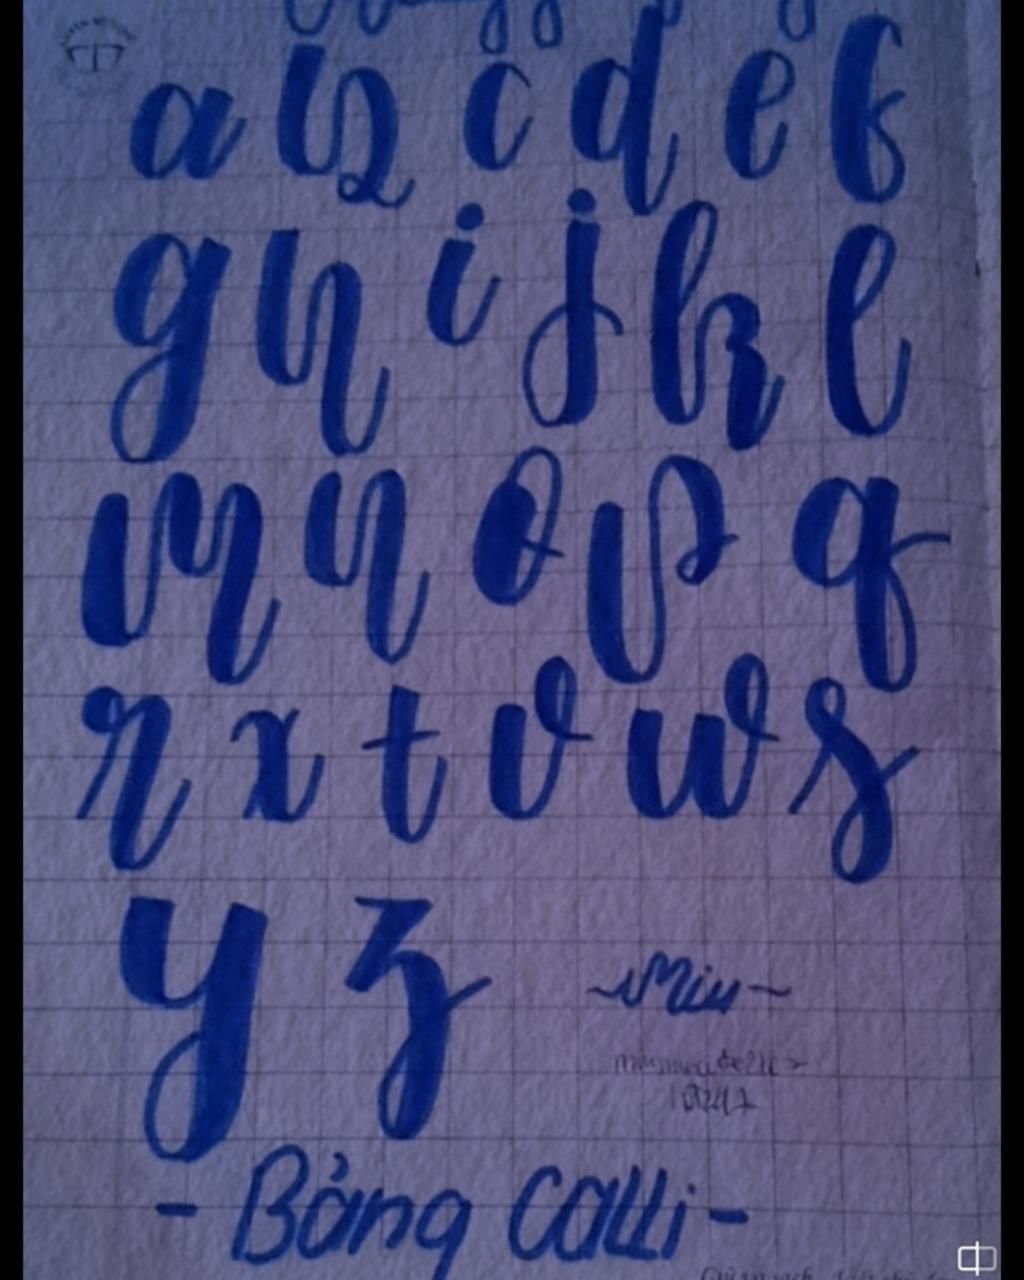 a b c d e f
g h i j k l
m n o p q
r x t v w s
y z
~Miu~
- Bảng Calli -